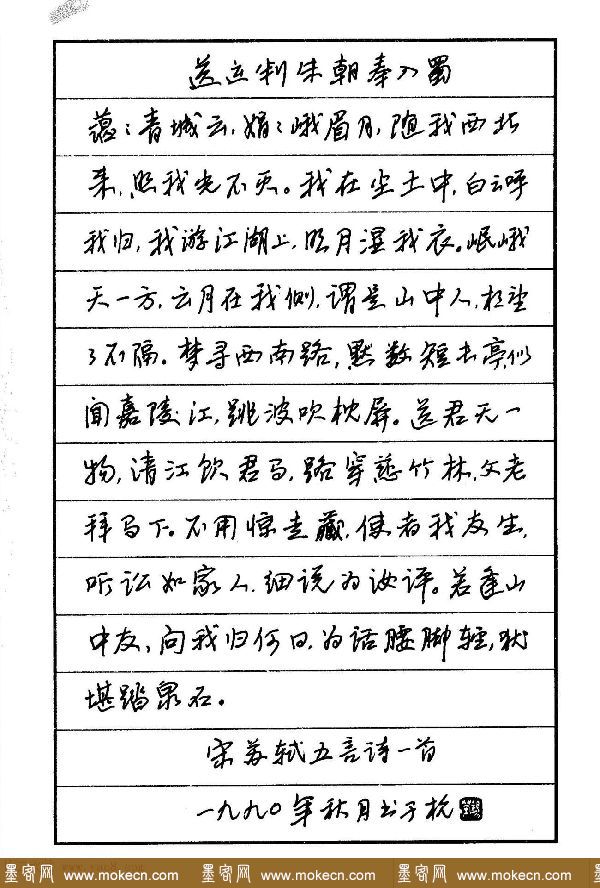 送运判朱朝奉入蜀
蔼々青城云,娟々峨眉月,随我西北
来,照我光不灭。我在尘土中,白云呼
我归,我游江湖上,明月湿我衣。岷峨
天一方,云月在我侧,谓是山中人,相望
了不隔。梦寻西南路,默数短长亭,似
闻嘉陵江,跳波吹枕屏。送君无一
物,清江饮君马,路穿慈竹林,父老
拜马下。不用惊走藏,使者我友生,
听讼如家人,细说为汝评。若逢山
中友,问我归何日,为话腰脚轻,犹
堪踏泉石。
宋苏轼五言诗一首
一九九〇年秋月书于杭
墨客网 www.mokecn.com 墨客网 www.mokecn.com 墨客网 www.mokecn.com